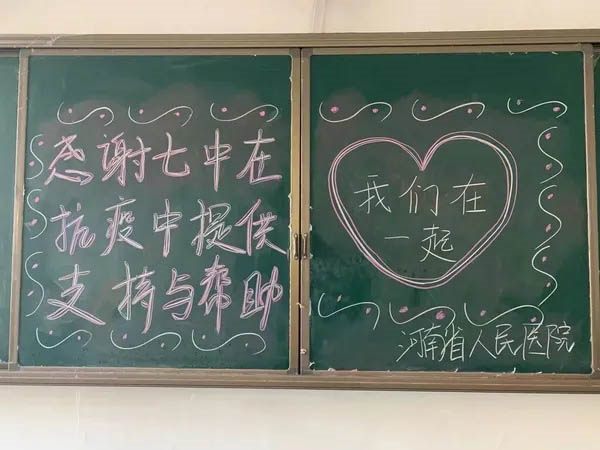 感谢七中在
抗疫中提供
支持与帮助
我们在
一起
河南省人民医院